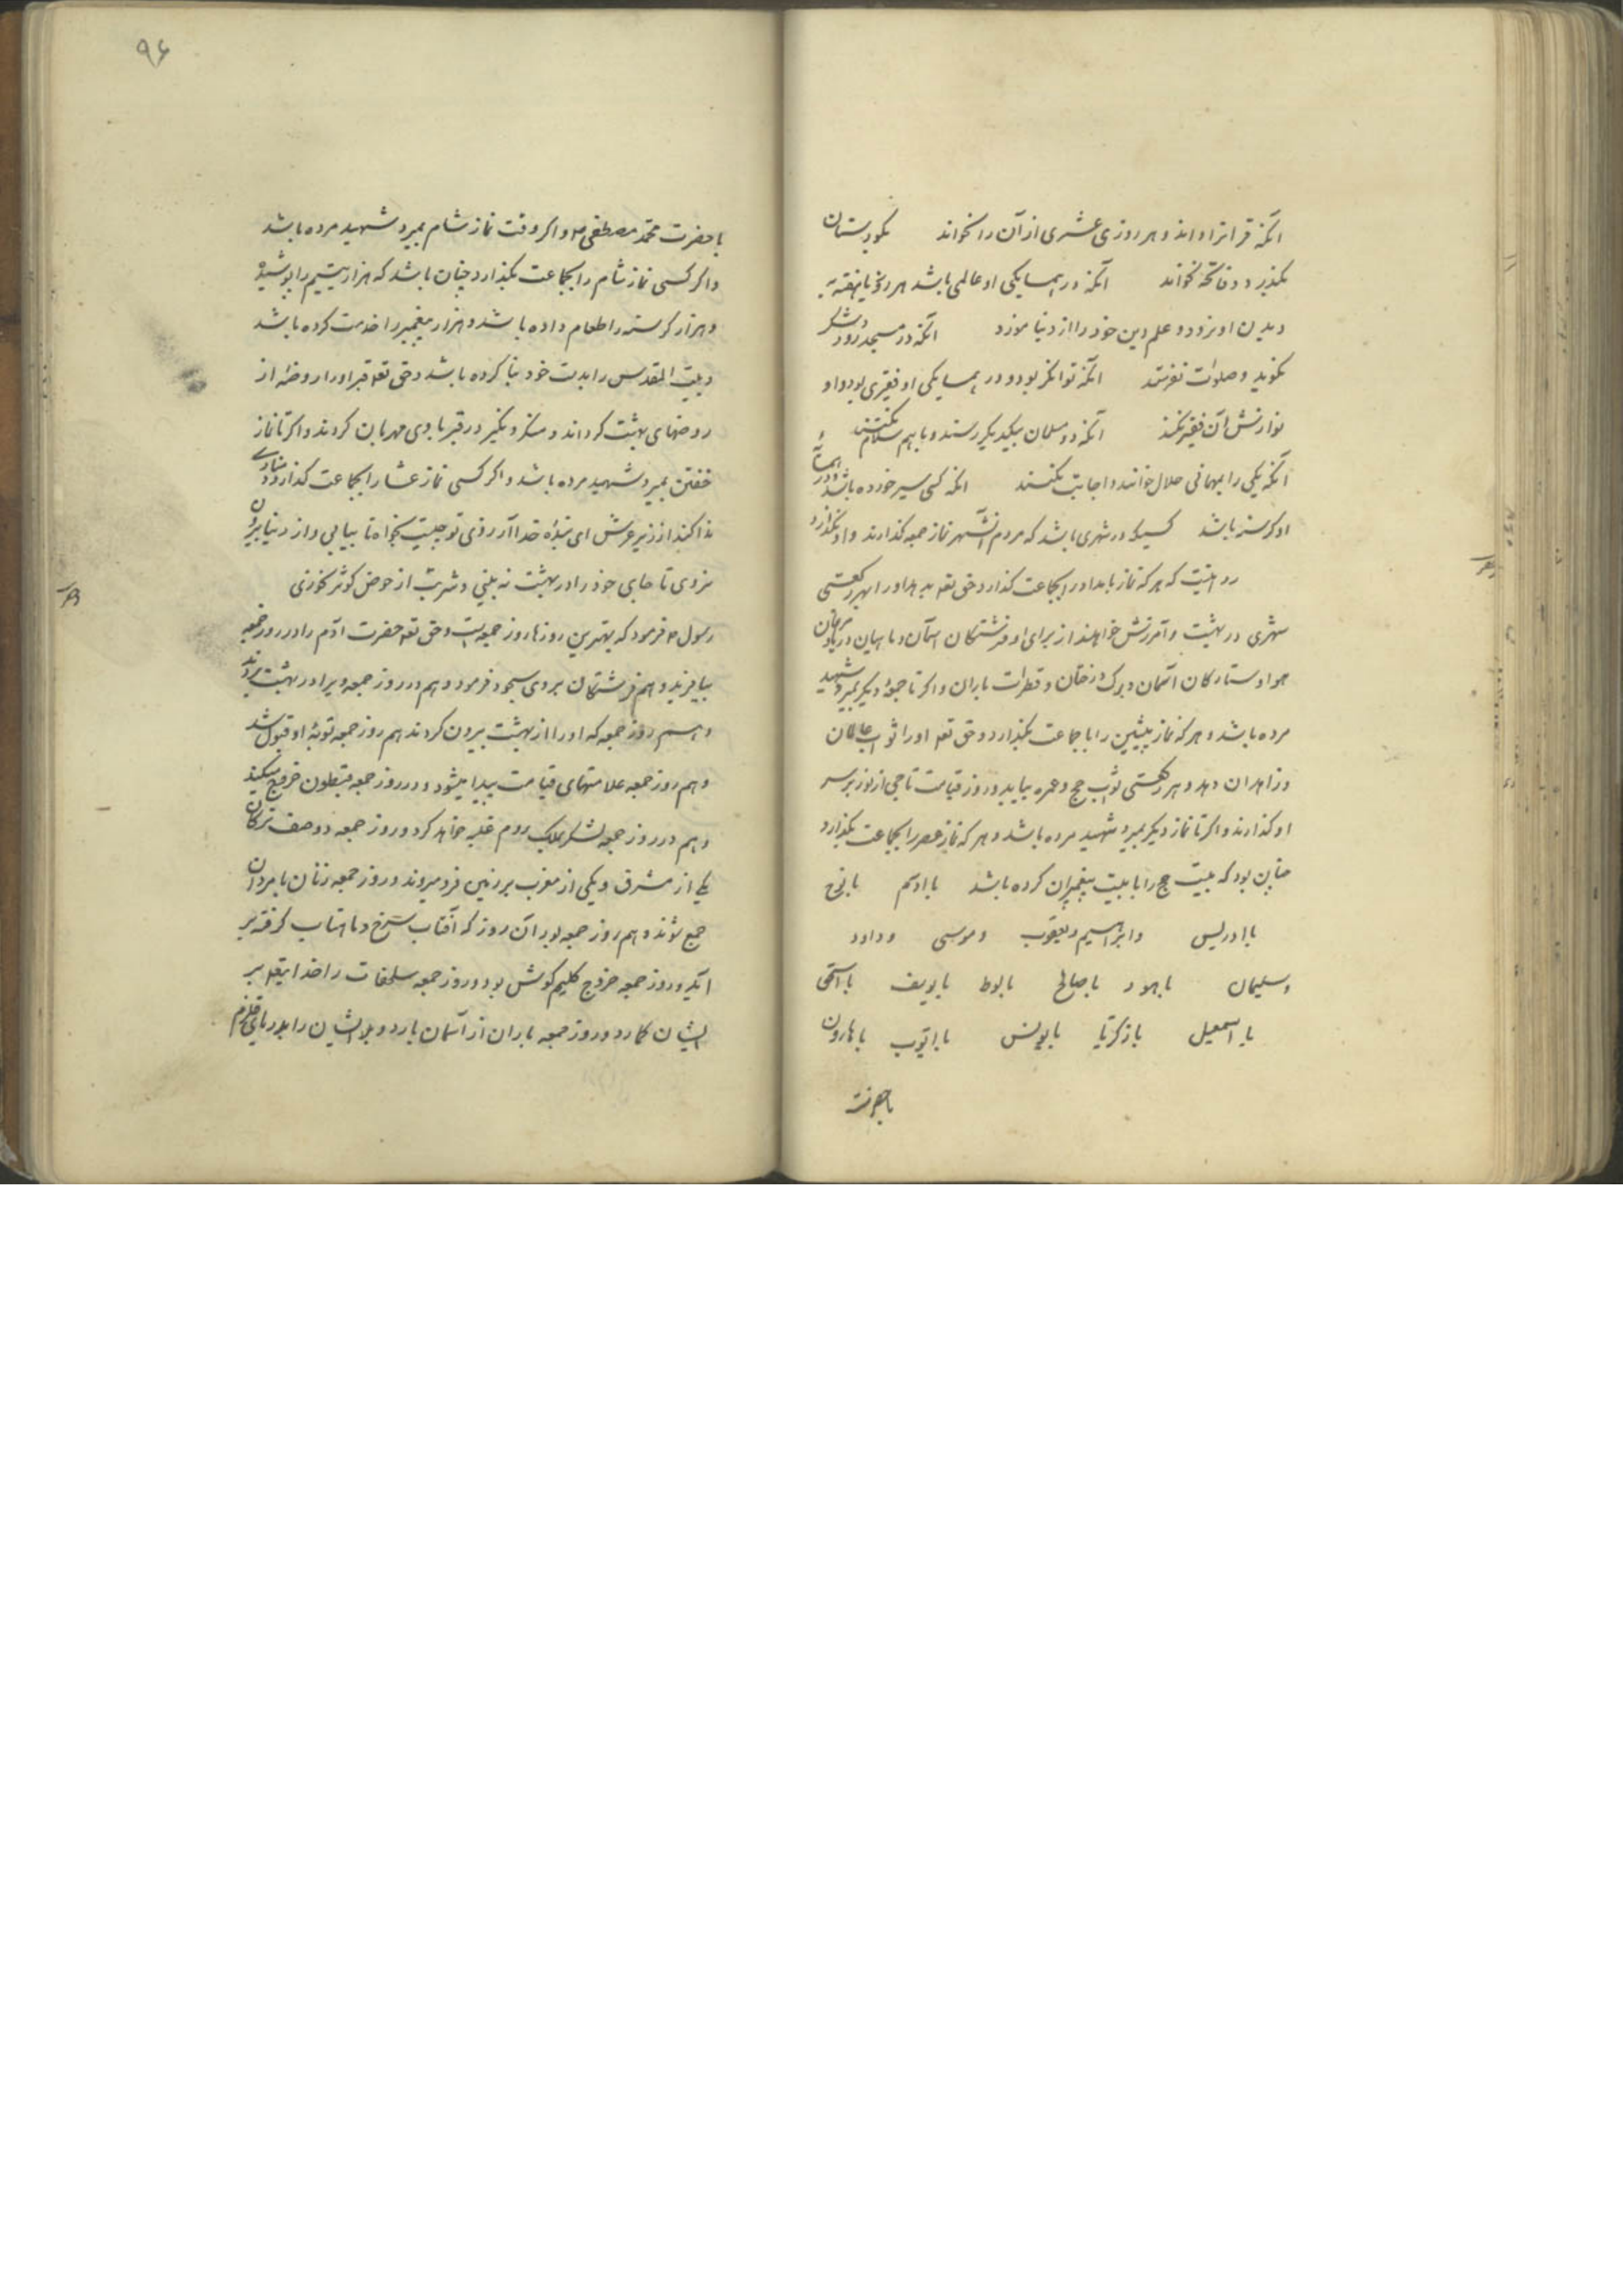 آنکه قرانرا داند و هر روزی عشری از آن را نخواند بکورستان
بکذرد و فاتحه نخواند آنکه در همسایکی او عالمی باشد هر روز یا بهفته به
دیدن او نرود و علم دین خود را از و نیاموزد آنکه در مسجد رود و شکر
نکوید و صلوات نفرستد آنکه توانکر بود و در همسایکی او فقیری بود و او
نوازش آن فقیر نکند آنکه دو مسلمان بیکدیکر رسند و با هم سلام نکنند
آنکه یکی را بمهمانی حلال خوانند و اجابت نکنند آنکه کسی سیر خورده باشد و در همسایه
او کرسنه باشد کسیکه در شهری باشد که مردم آنشهر نماز جمعه کذارند و او نکذارد
که هر که نماز بامداد را بجماعت کذارد حق تعه بدهد او را بهر رکعتی
شهری در بهشت و آمرزش خواهند از برای او فرشتکان آسمان و ماهیان دریا و مرغان
هوا و ستارکان آسمان و برک درختان و قطرات باران و اکر تا جمعهٔ دیکر بمیرد شهید
مرده باشد و هر که نماز پیشین را با جماعت بکذارد حق تعه او را ثواب عاملان
و زاهدان دهد و هر رکعتی ثواب حج و عمره بیابد و روز قیامت تاجی از نور بر سر
او کذارند و اکر تا نماز دیکر بمیرد شهید مرده باشد و هر که نماز عصر را بجماعت بکذارد
چنان بود که بیست حج را با بیست پیغمبران کرده باشد با آدم با نوح
با ادریس و ابراهیم و یعقوب و موسی و داود
و سلیمان با هود با صالح با لوط با یوسف با اسحق
با اسمعیل با زکریا با یونس با ایوب با هارون
با حضرت
۹۶
با حضرت محمد مصطفی م و اکر وقت نماز شام بمیرد شهید مرده باشد
و اکر کسی نماز شام را بجماعت بکذارد چنان باشد که هزار یتیم را پوشیده
و هزار کرسنه را طعام داده باشد و هزار پیغمبر را خدمت کرده باشد
و بیت المقدس را بدست خود بنا کرده باشد و حق تعه قبر او را روضهٔ از
روضهای بهشت کرداند و منکر و نکیر در قبر با وی مهربان کردند و اکر تا نماز
خفتن بمیرد شهید مرده باشد و اکر کسی نماز عشا را بجماعت کذارد منادی
ندا کند از زیر عرش ای بندهٔ خدا آرزوی تو چیست بخواه تا بیابی و از دنیا بیرون
نروی تا جای خود را در بهشت نه بینی و شربت از حوض کوثر نخوری
رسول م فرمود که بهترین روزها روز جمعه است و حق تعه حضرت آدم را در روز جمعه
بیافرید و هم فرشتکان بروی سجود فرمود و هم در روز جمعه ویرا در بهشت بردند
و هم روز جمعه که او را از بهشت بیرون کردند هم روز جمعه توبهٔ او قبول شد
و هم روز جمعه علامتهای قیامت پیدا میشود و در روز جمعه خروج میکند
و هم در روز جمعه لشکر ملک روم غلبه خواهد کرد و روز جمعه دو صف ترکان
یکی از مشرق و یکی از مغرب بر زمین فرو میروند و روز جمعه زنان با مردان
جمع شوند و هم روز جمعه بود آن روز که آفتاب سرخ و ماهتاب کرفته بر
آید و روز جمعه خروج کلیم کوش بود و روز جمعه سلحفات را خدایتعه بر
ایشان کمارد و روز جمعه باران از آسمان بارد و ایشان را بدریای قلزم